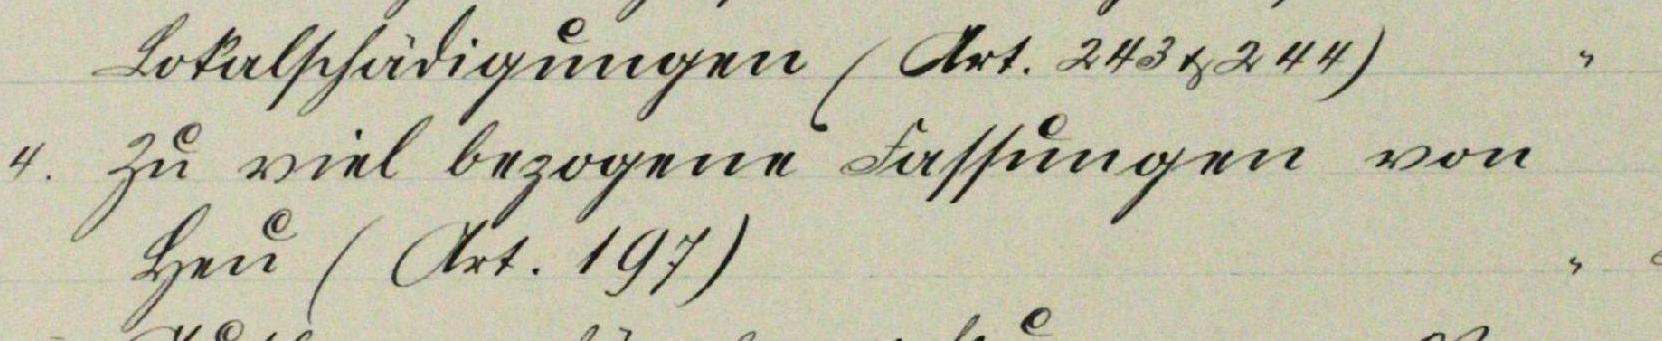 Lokalschädigungen (Art. 243 & 244) "
4. Zu viel bezogene Fassungen von
Heu (Art. 197) "